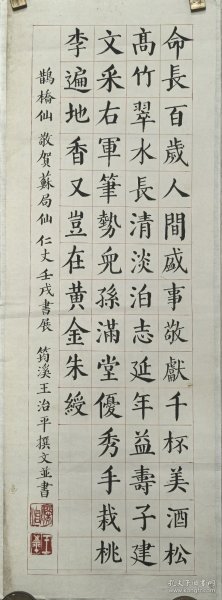 命長百歲人間盛事敬獻千杯美酒松
高竹翠水長清淡泊志延年益壽子建
文采右軍筆勢兒孫滿堂優秀手栽桃
李遍地香又豈在黃金朱綬
鵲橋仙 敬賀蘇局仙 仁丈壬戌書展 筠溪王治平撰文並書